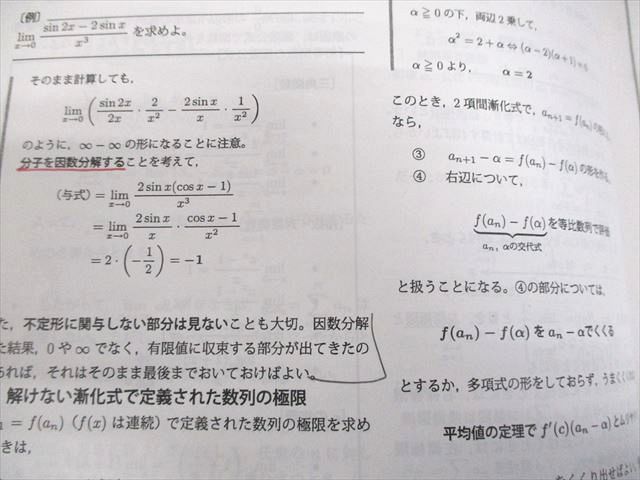 [例]
lim_{x→0} (sin 2x − 2 sin x)/x³ を求めよ。
そのまま計算しても，
lim_{x→0} ( sin 2x/2x · 2/x² − 2 sin x/x · 1/x² )
のように，∞ − ∞ の形になることに注意。
分子を因数分解することを考えて，
(与式) = lim_{x→0} 2 sin x(cos x − 1)/x³
= lim_{x→0} 2 sin x/x · (cos x − 1)/x²
= 2 · (−1/2) = −1
た，不定形に関与しない部分は見ないことも大切。因数分解
た結果，0 や ∞ でなく，有限値に収束する部分が出てきたの
あれば，それはそのまま最後までおいておけばよい。
解けない漸化式で定義された数列の極限
= f(aₙ) (f(x) は連続) で定義された数列の極限を求め
きは，
α ≧ 0 の下，両辺 2 乗して，
α² = 2 + α ⇔ (α − 2)(α + 1) = 0
α ≧ 0 より， α = 2
このとき，2 項間漸化式で，aₙ₊₁ = f(aₙ) の
なら，
③ aₙ₊₁ − α = f(aₙ) − f(α) の形を
④ 右辺について，
f(aₙ) − f(α) を等比数列で評価
aₙ，αの交代式
と扱うことになる。④の部分については，
f(aₙ) − f(α) を aₙ − α でくくる
とするか，多項式の形をしておらず，うまく
平均値の定理で f′(c)(aₙ − α) と